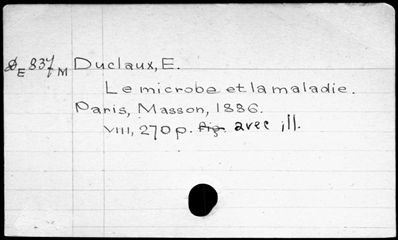 ØE 837 M Duclaux, E.
Le microbe et la maladie.
Paris, Masson, 1886.
VIII, 270 p. fig. avec ill.